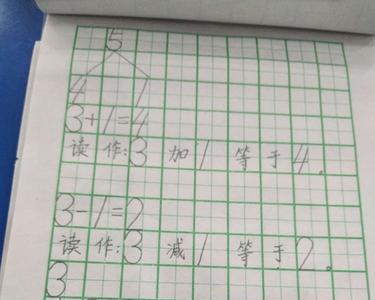 5
4 1
3+1=4
读作:3 加 1 等于 4。
3-1=2
读作:3 减 1 等于 2。
3